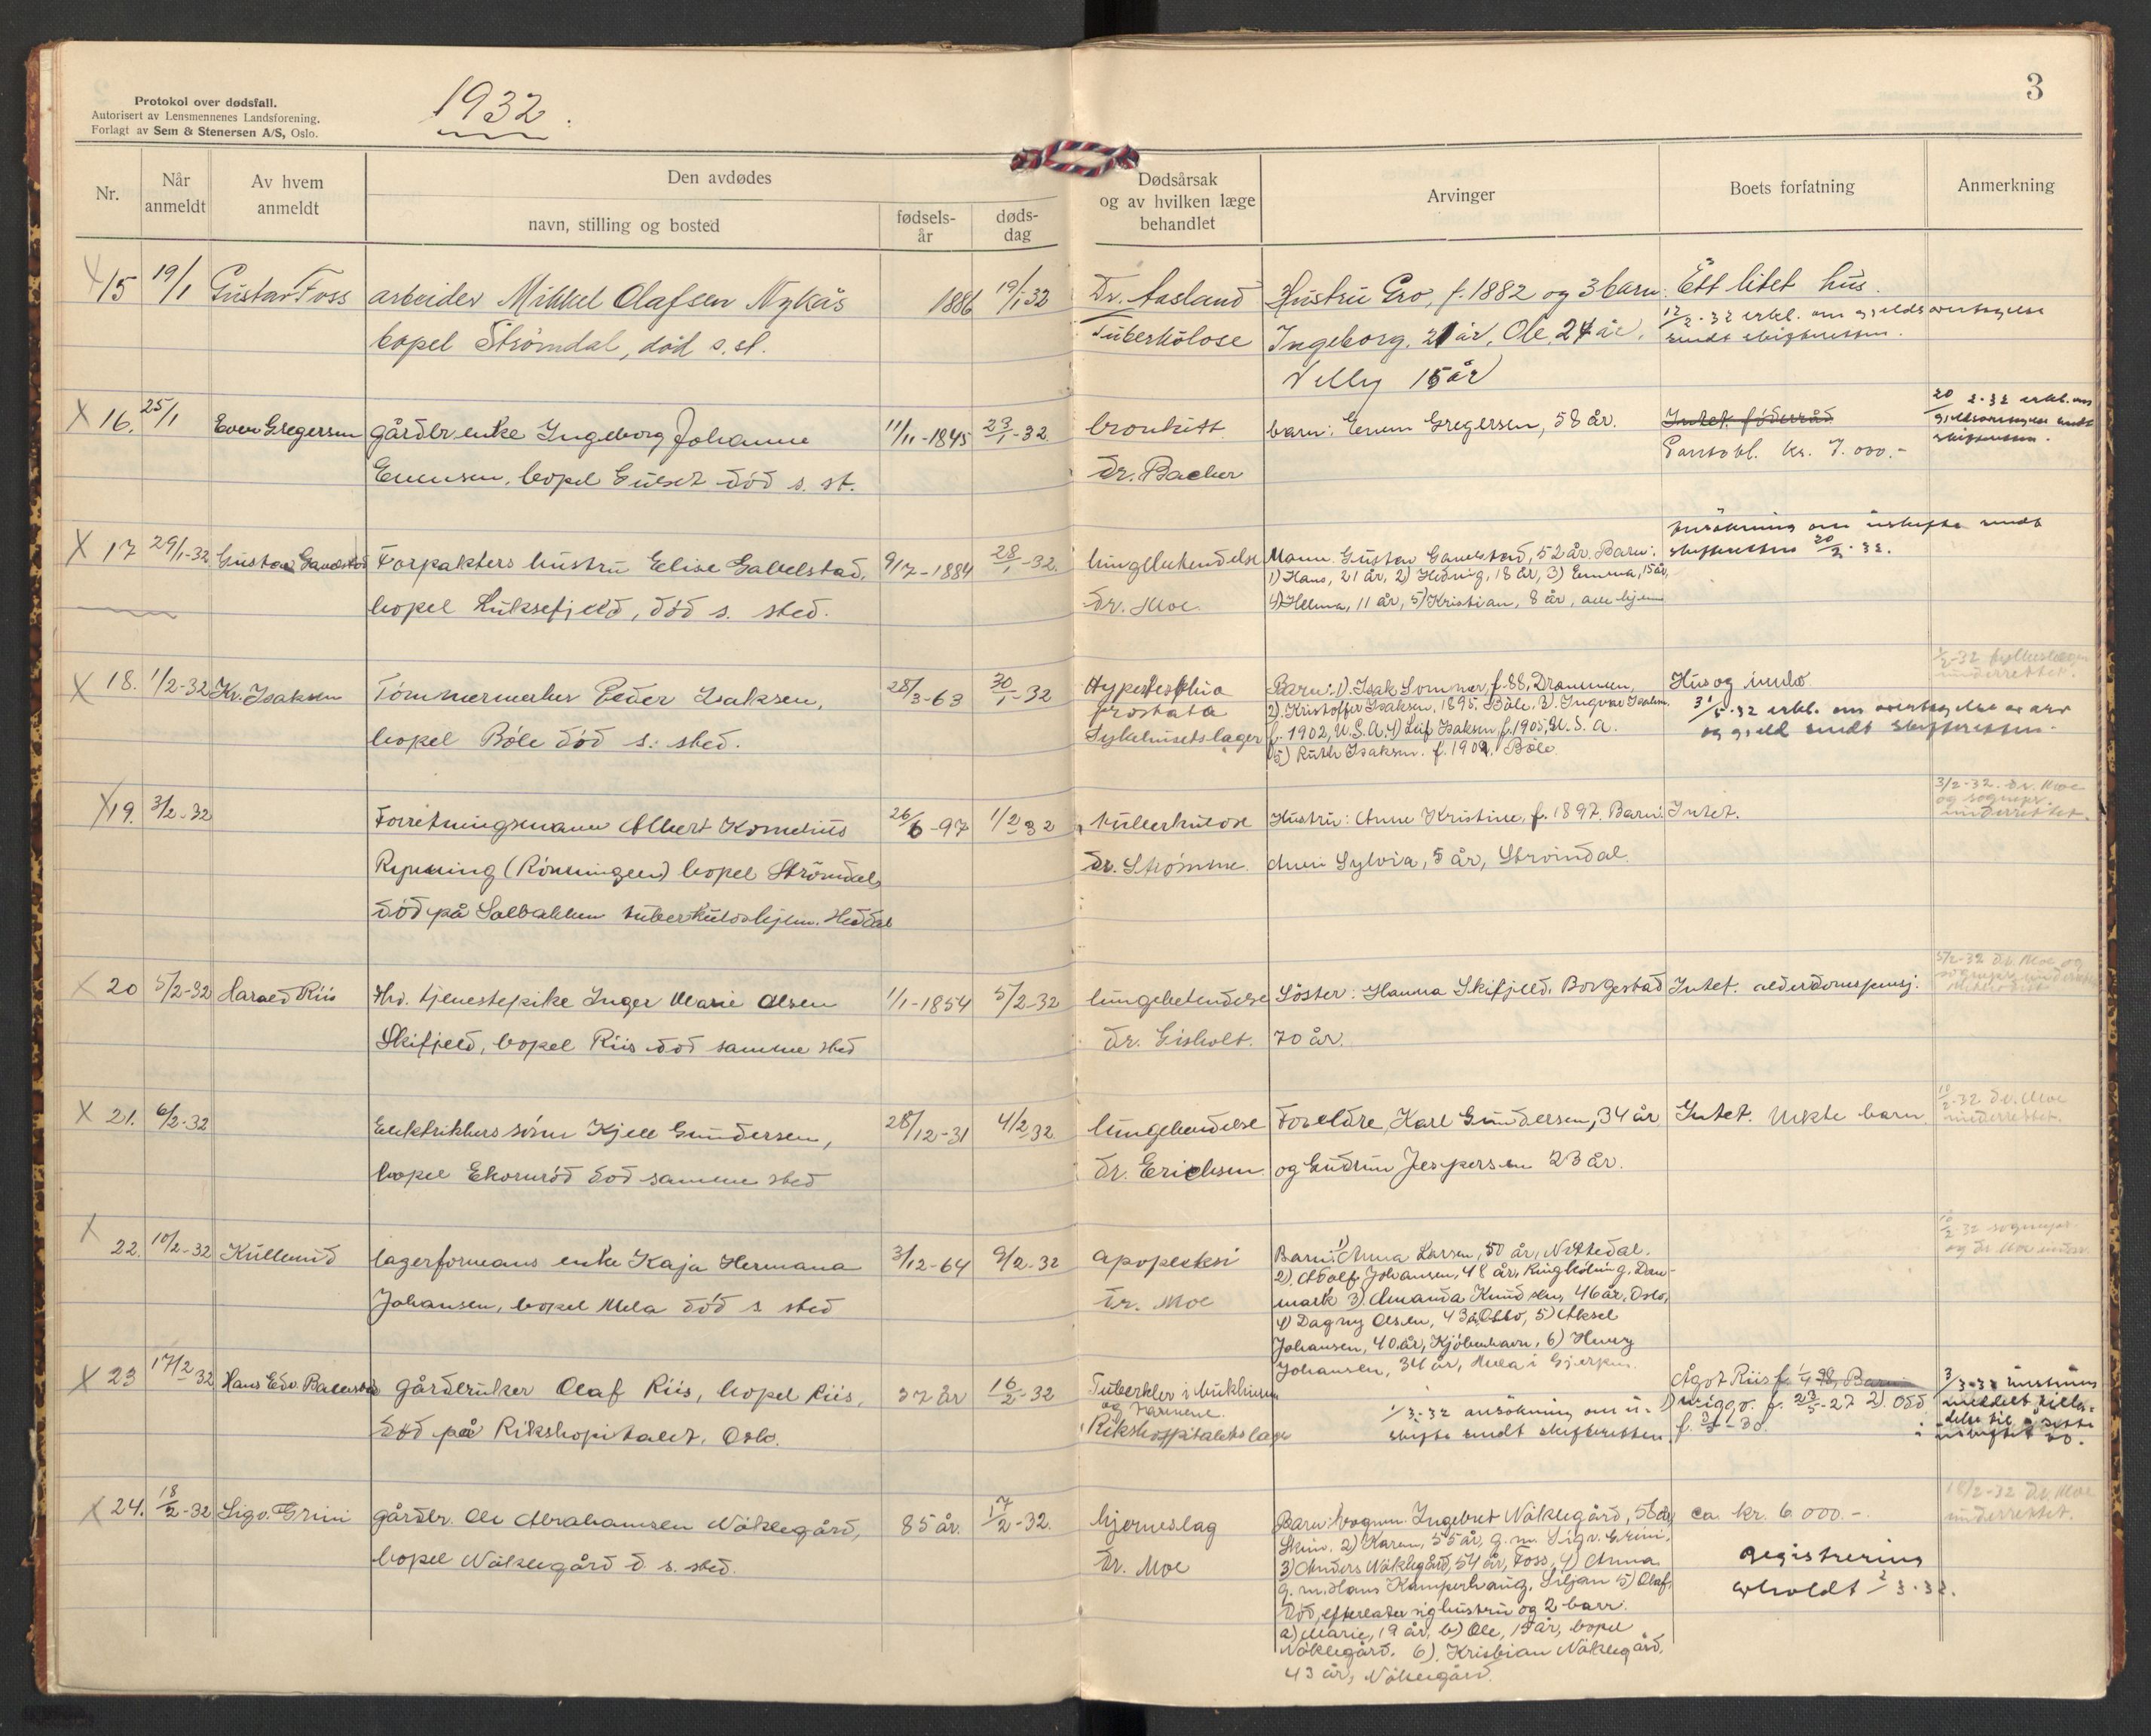 3
Protokol over dødsfall.
Autorisert av Lensmennenes Landsforening.
Forlagt av Sem & Stenersen A/S, Oslo.
1932.
Nr.
Når anmeldt
Av hvem anmeldt
Den avdødes
navn, stilling og bosted
fødsels-år
døds-dag
Dødsårsak og av hvilken læge behandlet
Arvinger
Boets forfatning
Anmerkning
X 15 19/1 Gustav Foss arbeider Mikkel Olafsen Nykås 1886 19/1 32 Dr. Aasland Hustru Gro, f. 1882 og 3 barn: Ett litet hus.
bopel Strömdal, död s. st. Tuberkulose Ingeborg, 21 år, Ole, 24 år, 12/2-32 erkl. om gjeldsovertagelse
Velly 15 år sendt skifteretten.
X 16. 25/1 Even Gregersen gårdbr enke Ingeborg Johanne 11/11-1845 23/1-32 bronkitt barn: Even Gregersen, 58 år. Intet. föderråd 20/2-32 erkl. om
Evensen, bopel Gulset död s. st. Dr. Backer Pantobl. kr. 7.000.- gjeldsovertagelse sendt
skifteretten.
X 17 29/1-32 Gustav Gavelstad Forpakters hustru Elise Gavelstad, 9/7-1884 28/1-32 lungebetendelse Mann: Gustav Gavelstad, 52 år. Barn: Ansökning om uskifte sendt
1) Hans, 21 år, 2) Hedvig, 18 år, 3) Emma, 15 år, skifteretten 20/2-32.
bopel Luksefjeld, död s. sted. Dr. Moe. 4) Helma, 11 år, 5) Kristian, 8 år, alle hjem
X 18. 1/2-32 Kr. Isaksen Tömmermerker Peder Isaksen, 28/3-63 30/1-32 Barn: 1) Isak Sommer, f. 88, Drammen, Hus og innbo
prostata 2) Kristoffer Isaksen, 1895, Böle, 3) Ingvar Isaksen 31/5-32 erkl. om overtagelse av arv
bopel Böle död s. sted. Sykehusets læger f. 1902, U.S.A. 4) Leif Isaksen f. 1905, U.S.A. og gjeld sendt skifteretten.
5) Ruth Isaksen. f. 1909, Böle underrettet.
X 19. 3/2-32 Forretningsmann Albert Kornelius 26/6-97 1/2 32 tuberkulose Hustru: Anne Kristine, f. 1897. Barn: Intet. 3/2-32. Dr. Moe
og sognepr.
underrettet.
Rynning (Rönningen) bopel Strömdal, Dr. Strömme. Sylvia, 5 år, Strömdal.
död på Solbakken tuberkuloshjem. Heddal
X 20 5/2-32 Harald Riis Fhv. tjenestepike Inger Marie Olsen 1/1-1854 5/2-32 lungebetendelse Söster: Hanna Skifjeld, Borgestad Intet. alderdomspensj. 5/2-32 Dr. Moe og
sognepr. underrettet
Skifjeld, bopel Riis död samme sted Dr. Gisholt. 70 år.
X 21. 6/2-32 Elektrikers sönn Kjell Gundersen, 28/12-31 4/2 32 lungebendelse Foreldre, Karl Gundersen, 34 år Intet. Uekte barn 10/2-32 Dr. Moe
underrettet.
bopel Ekornröd död samme sted Dr. Erichsen og Gudrun Jespersen 23 år.
X 22. 10/2-32 Kullerud lagerformans enke Kaja Hermana 3/12-64 9/2-32 apopleksi Barn: 1) Anna Larsen, 50 år, Nittedal. 10/2-32 sognepr.
og dr. Moe underr.
2). Adolf Johansen, 48 år, Ringköbing, Dan-
Johansen, bopel Mela död s sted Dr. Moe mark 3) Amanda Knudsen, 46 år, Oslo,
4) Dagny Olsen, 43 å, Oslo, 5) Aksel
Johansen, 40 år, Kjöbenhavn, 6) Henry
Johansen, 34 år, Mela i Gjerpen.
X 23 17/2 32 Hans Edv. Ballestad gårdbruker Olaf Riis, bopel Riis, 37 år 16/2-32 Tuberkler i bukhinnen Ågot Riis f. 1/4 98, Barn
og tarmene. 1/3-32 ansökning om u- 1) Vrigo. f. 23/5-27 2). Odd
död på Rikshopitalet, Oslo. Rikshospitalets læge skifte sendt skifteretten f. -30.
X 24. 18/2-32 Sigv. Grini gårdbr. Ole Abrahamsen Nöklegård, 85 år. 17/2-32. hjerneslag Barn: Vognm. Ingebret Nöklegård, 58 år, ca. kr. 6 000.- 18/2-32 Dr. Moe
underrettet.
Skien, 2) Karen, 55 år, g. m. Sigv. Grini,
bopel Nöklegård d. s. sted. Dr. Moe 3) Anders Nöklegård, 54 år, Foss, 4) Anna Registrering
g. m. Hans Kamperhaug, Siljan 5) Olaf, avholdt 2/3-32.
död, efterlater sig hustru og 2 barn.
a) Marie, 19 år, b) Ole, 15 år, bopel
Nöklegård. 6). Kristian Nöklegård,
43 år, Nöklegård.